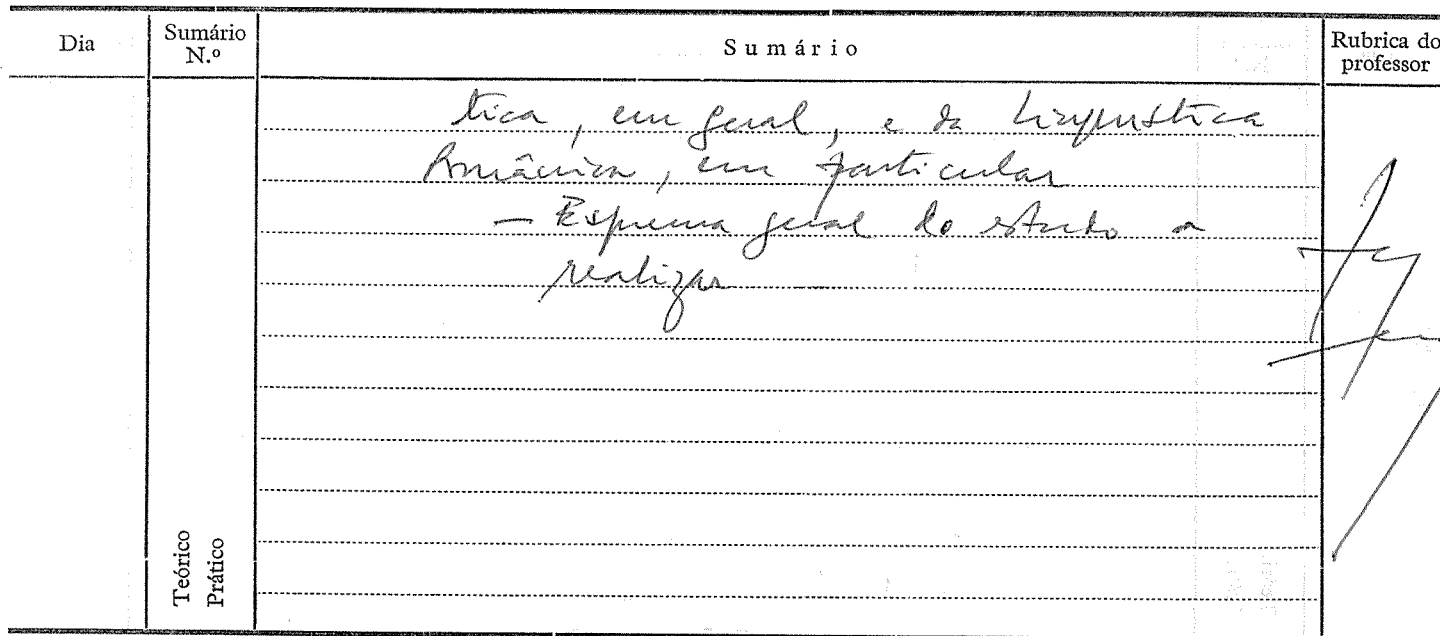 Dia
Sumário
N.º
Sumário
Rubrica do
professor
tica, em geral, e da Linguística
Românica, em particular
— Esquema geral do estudo a
realizar
Teórico
Prático